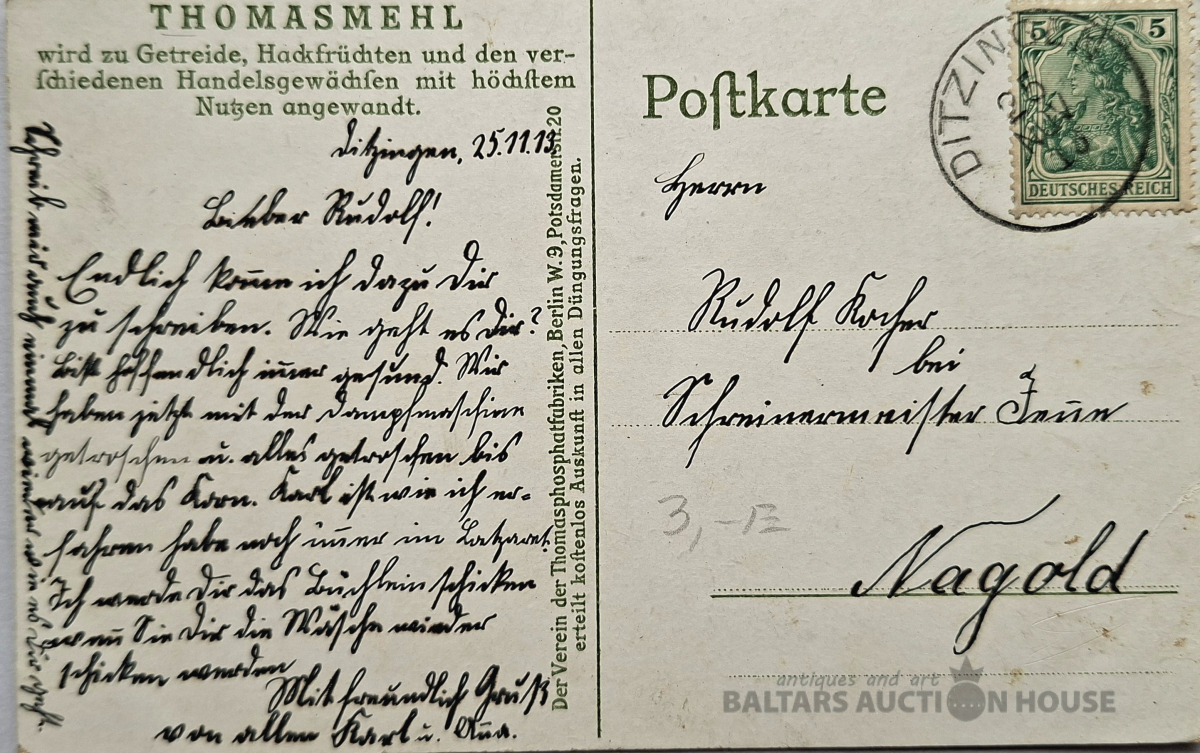 THOMASMEHL
wird zu Getreide, Hackfrüchten und den ver-
ſchiedenen Handelsgewächſen mit höchſtem
Nutzen angewandt.
Ditzingen, 25.11.13.
Lieber Rudolf!
Endlich komme ich dazu Dir
zu schreiben. Wie geht es Dir?
Bist hoffendlich immer gesund. Wir
haben jetzt mit der Dampfmaschine
getroschen u. alles getroschen bis
auf das Korn. Karl ist wie ich er-
fahren habe noch immer im Latzaret.
Ich werde Dir das Büchlein schicken
wann Sie Dir die Wäsche wieder
schicken werden
Mit freundlich Gruß
von allen Karl u.
Schreib mir auch einmal wieder wie es Dir geht.
Der Verein der Thomasphosphatfabriken, Berlin W. 9, Potsdamerſtr. 20
erteilt koſtenlos Auskunft in allen Düngungsfragen.
Poſtkarte
DITZINGEN
25
NOV
13
5 5
DEUTSCHES REICH
Herrn
Rudolf Kocher
bei
Schreinermeister
Nagold
3,-
antiques and art
BALTARS AUCTION HOUSE